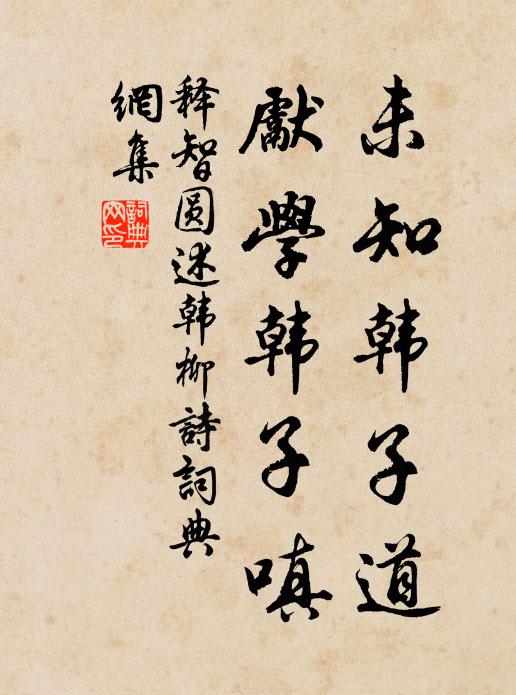 未知韩子道
厭學韩子嗔
释智圆述韩柳詩詞典
網集
詞典
网印